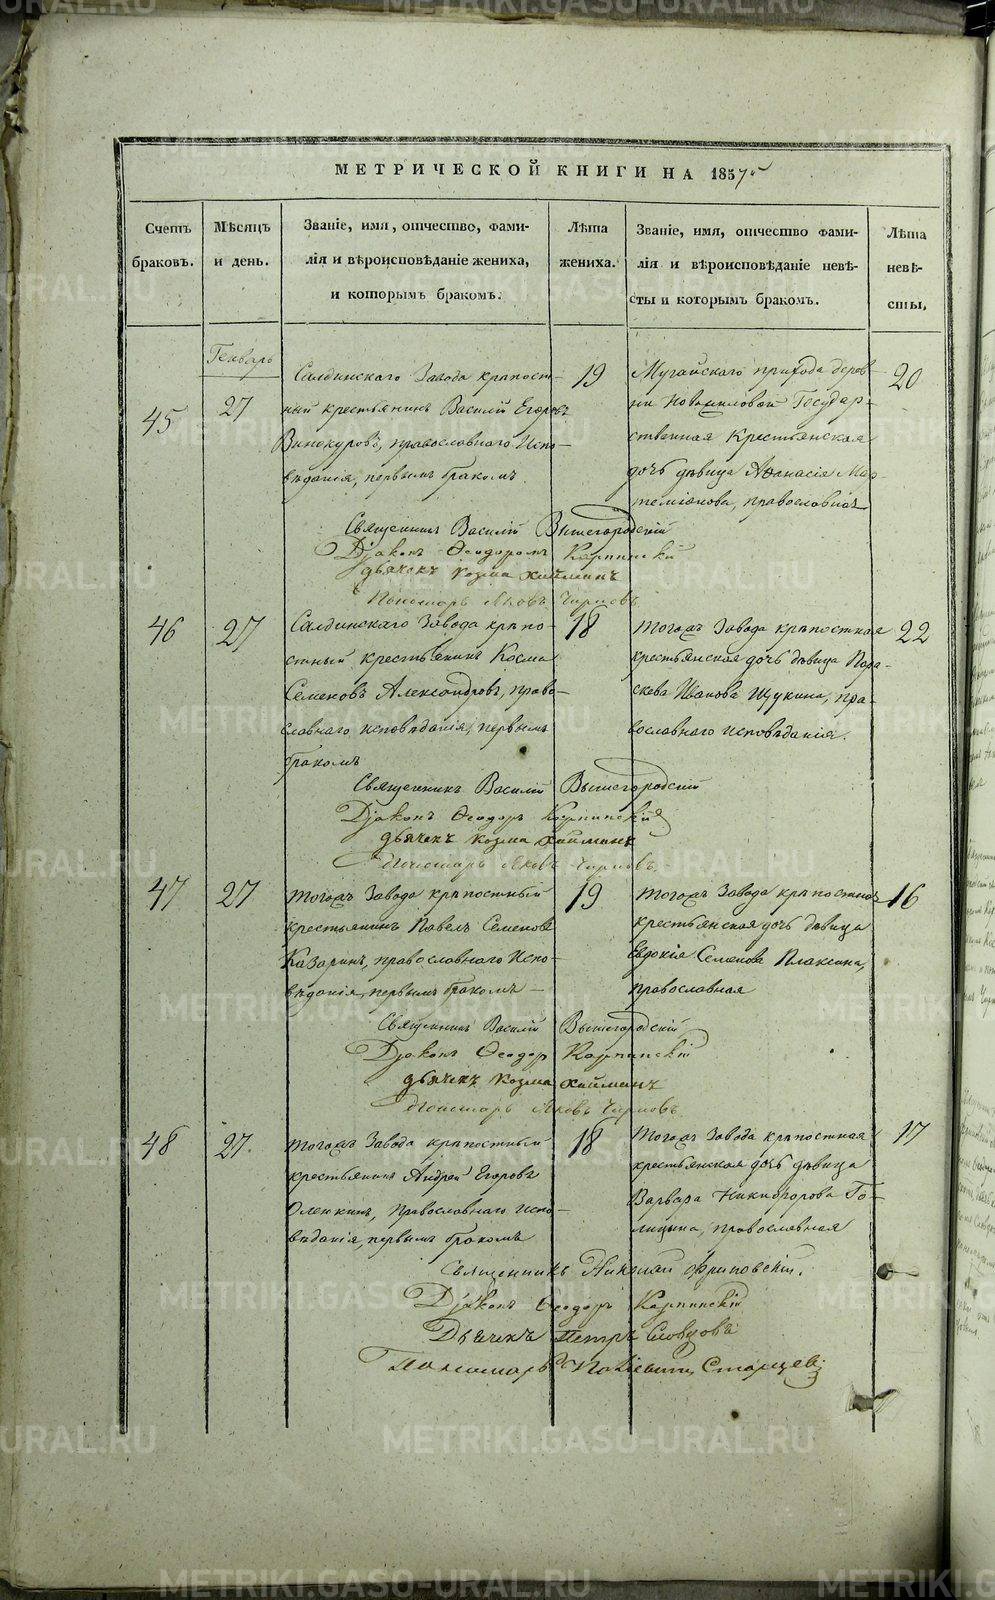 МЕТРИЧЕСКОЙ КНИГИ НА 1857й
Счетъ браковъ.
Мѣсяцъ и день.
Званіе, имя, отчество, фами-
лія и вѣроисповѣданіе жениха,
и которымъ бракомъ.
Лѣта жениха.
Званіе, имя, отчество фами-
лія и вѣроисповѣданіе невѣ-
сты и которымъ бракомъ.
Лѣта невѣ-
сты.
Генварь
45
27
Салдинскаго Завода крѣпост-
ный крестьянинъ Василій Егоровъ
Винокуровъ, православнаго Испо-
вѣданія, первымъ бракомъ.
19
Мугайскаго прихода дерев-
ни Новошиловой Государ-
ственная Крестьянская
дочь дѣвица Аѳанасія Мар-
теміянова, православная
20
Священникъ Василій Вышегородскій
Діаконъ Ѳеодоръ Карпинскій
дьячекъ Козма Хайминъ
Пономарь Яковъ Чирковъ
46
27
Салдинскаго Завода крѣпо-
стный крестьянинъ Косма
Семеновъ Александровъ, право-
славнаго исповѣданія, первымъ
бракомъ
18
Тогожъ Завода крѣпостная
крестьянская дочь дѣвица Пара-
скева Иванова Щукина, пра-
вославнаго исповѣданія.
22
Священникъ Василій Вышегородскій
Діаконъ Ѳеодоръ Карпинскій
дьячекъ Козма Хайминъ
Пономарь Яковъ Чирковъ
47
27
Тогожъ Завода крѣпостный
крестьянинъ Павелъ Семеновъ
Казаринъ, православнаго Испо-
вѣданія, первымъ бракомъ —
19
Тогожъ Завода крѣпостная
крестьянская дочь дѣвица
Евдокія Семенова Плаксина,
православная
16
Священникъ Василій Вышегородскій
Діаконъ Ѳеодоръ Карпинскій
дьячекъ Козма Хайминъ
Пономарь Яковъ Чирковъ
48
27.
Тогожъ Завода крѣпостный
крестьянинъ Андрей Егоровъ
Оленкинъ, православнаго испо-
вѣданія, первымъ бракомъ
18
Тогожъ Завода крѣпостная
крестьянская дочь дѣвица
Варвара Никифорова Го-
лицына, православная
17
Священникъ Николай Фриповскій.
Діаконъ Ѳеодоръ Карпинскій
Дьячекъ Петръ Словцовъ
Пономарь Старцевъ
METRIKI.GASO-URAL.RU